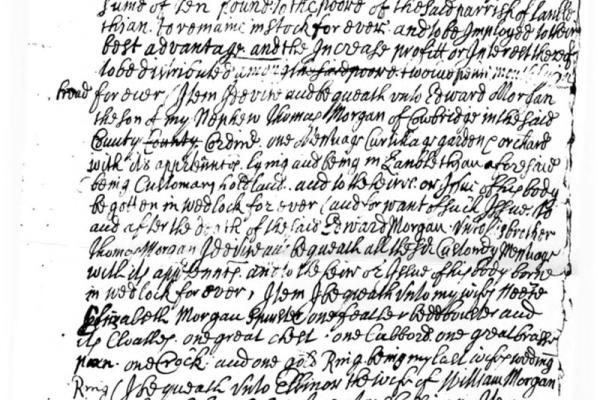 sume of Ten pound to the poore of the said parrish of Lanble
thian. to remaine in stock for ever. and to be Imployed to their
best advantage. and the Increase profitt or Interest thereof
to be distributed amongst the said poore
bread for ever / Item I devise and bequeath unto Edward Morgan
the son of my Nephew Thomas Morgan of Cowbridge in the said
County County one Messuage garden & orchard
with its appurtenances lying and being in Lanblethyan aforesaid
(being Customary hold land. and to the heirs or Issue of his body
begotten in wedlock for ever (and for want of such Issue
and after the death of the said Edward Morgan unto his brother
Thomas Morgan I devise and bequeath all the sd Custom'dy Messuage
with its appten'nts. and to the heirs or Issue of his body borne
in wedlock for ever, Item I bequeath unto my wifes Neece
Elizabeth Morgan spinster one feather bed boulster and
its Cloathes one great chest. one Cubbord. one great brasse
pann. one Crock. and one gold Ring. being my last wifes weding
Ring (I bequeath unto Ellinor the wife of William Morgan